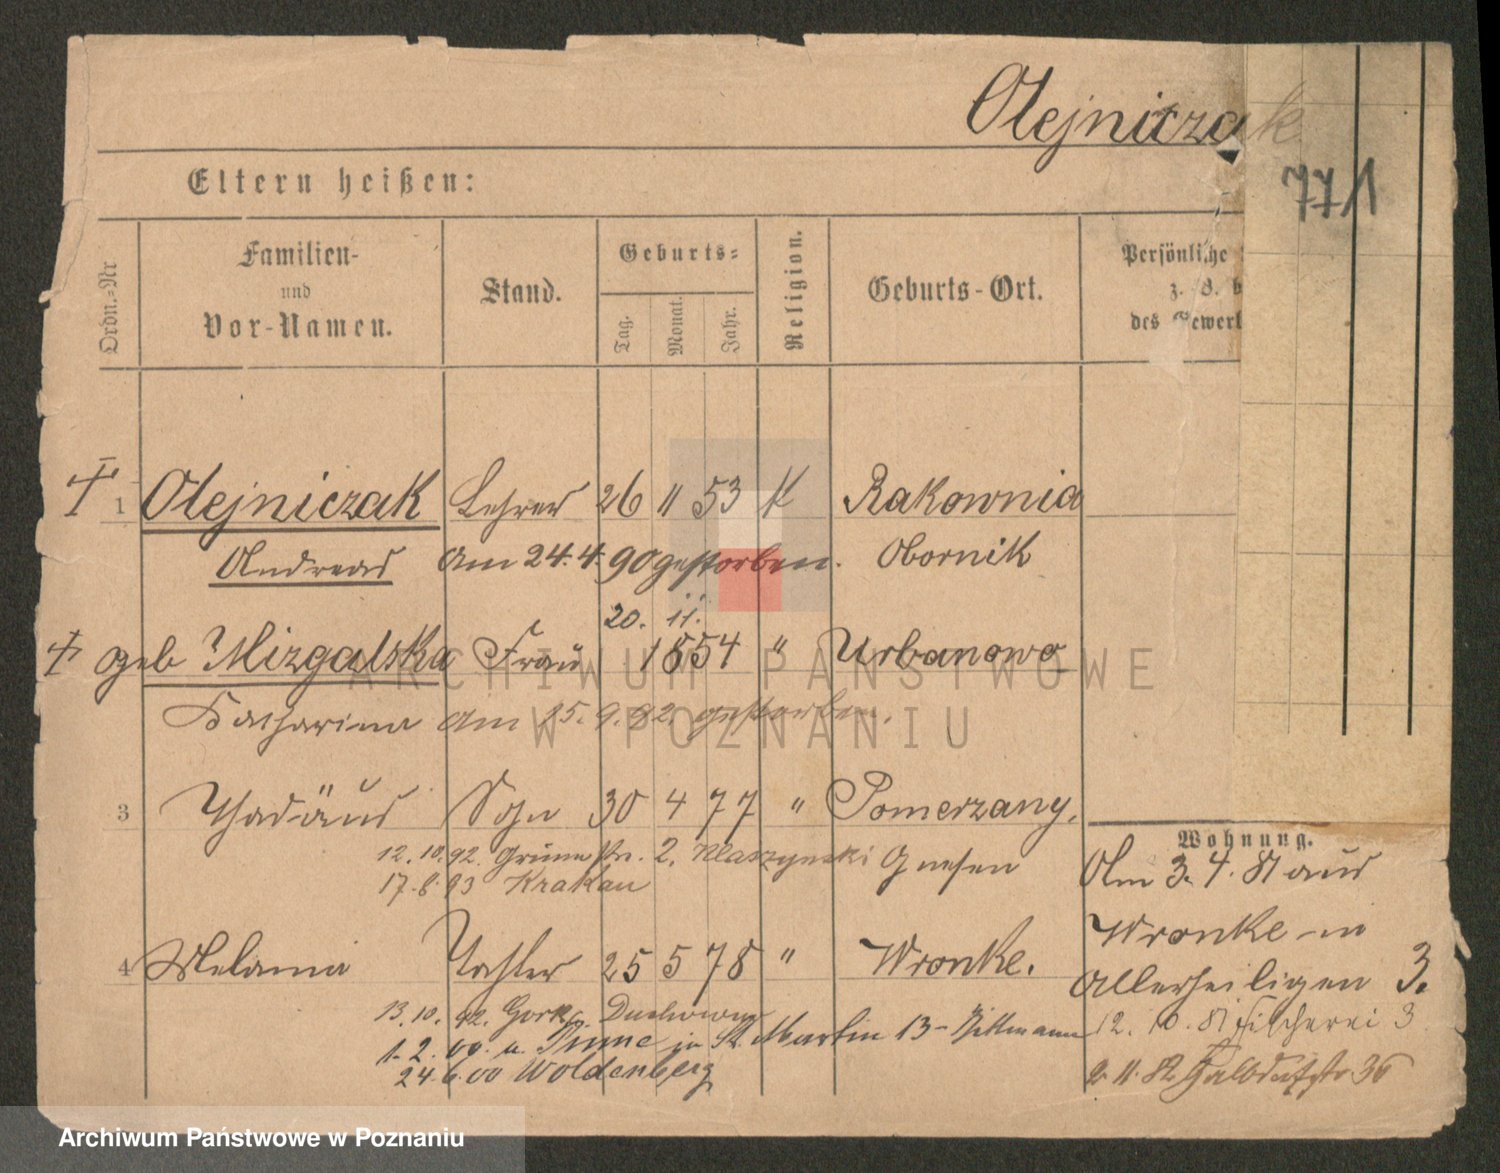 Olejniczak
77/1
Eltern heißen:
Ordn.-Nr
Familien-
und
Vor-Namen.
Stand.
Geburts-
Tag.
Monat.
Jahr.
Religion.
Geburts-Ort.
Persönliche
z. B.
des Gewerb
1 Olejniczak Lehrer 26 11 53 K Rakownia
Andreas am 24.4.90 gestorben. Obornik
20. 11.
geb Mizgalska Frau 1854 " Urbanowo
Katharina am 15.9.82. gestorben.
3 Thadäus Sohn 30 4 77 " Pomerzany.
12.10.92. Grünestr. 2. Klaszynski Gnesen
17.8.93 Krakau
Wohnung.
Am 3.4.81 aus
Wronke in
Allerheiligen 3.
12.10.81 Fischerei 3
2.11.82 Halbdorfstr 36
4 Melania Tochter 25 5 78 " Wronke.
13.10.92.
1.2.00. u. Pinne in St. Martin 13 - Hittmann
24.6.00 Woldenberg
ARCHIWUM PAŃSTWOWE
W POZNANIU
Archiwum Państwowe w Poznaniu